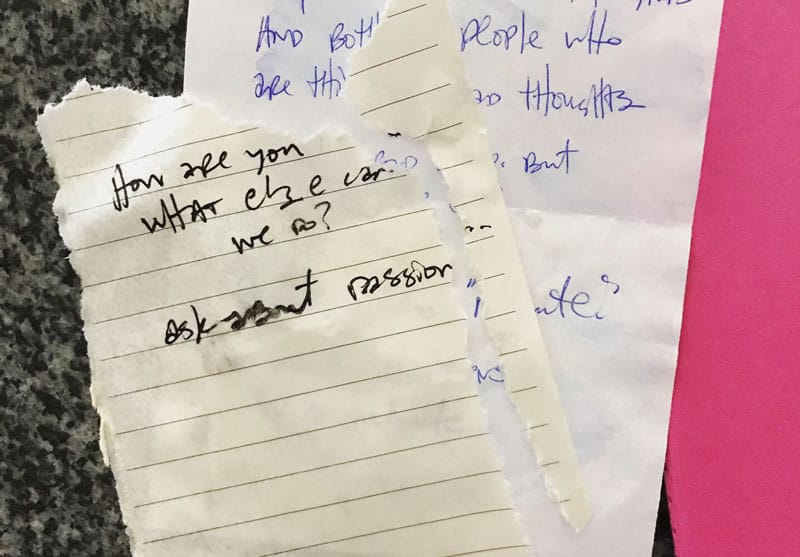 AND BOTH PEOPLE who
are thi AD thoughts
But
ute?
How are you
what else can
we do?
ask about passion